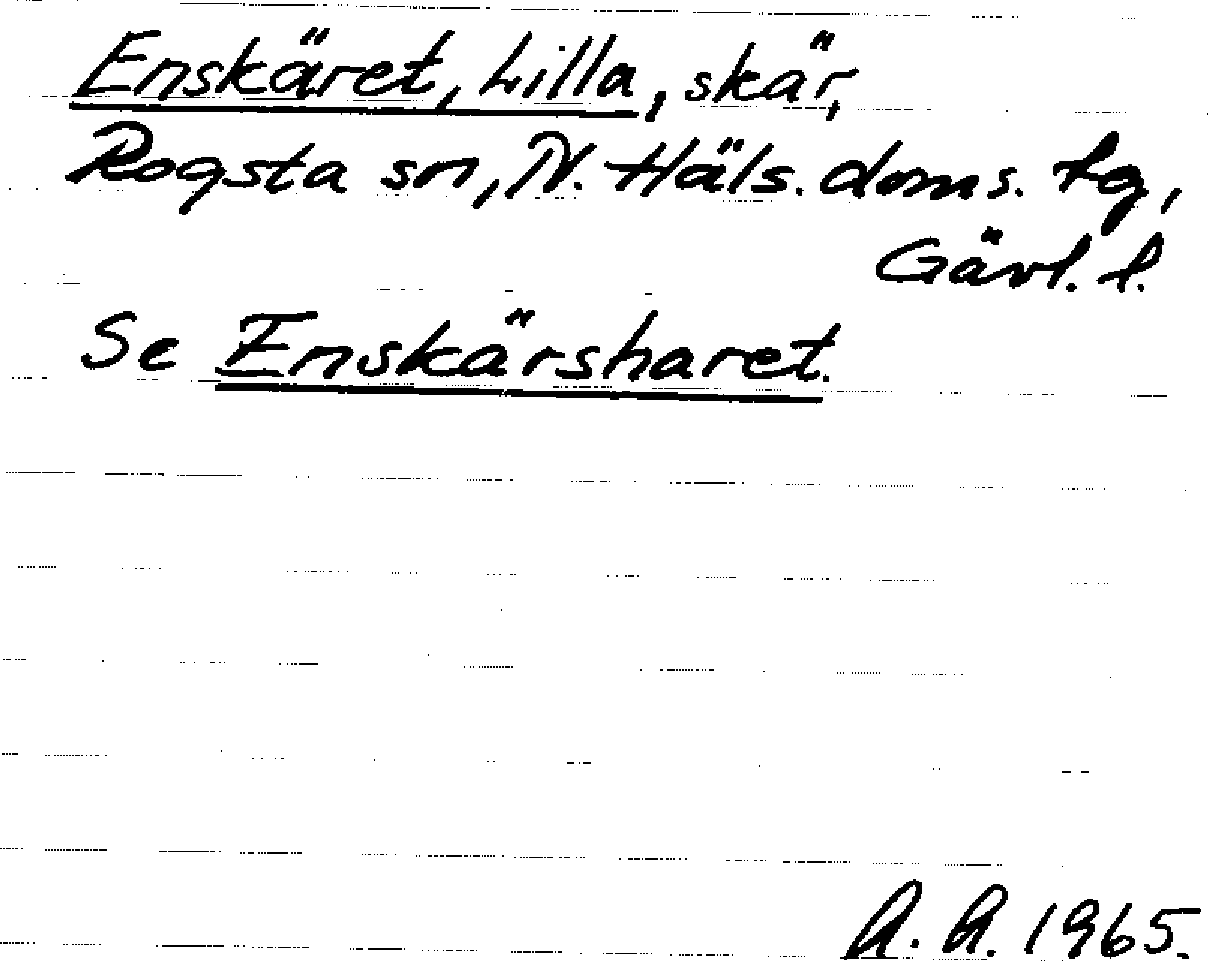 Enskäret, Lilla, skär,
Rogsta sn, N. Häls. doms. tg,
Gävl. l.
Se Enskärsharet.
A. A. 1965.